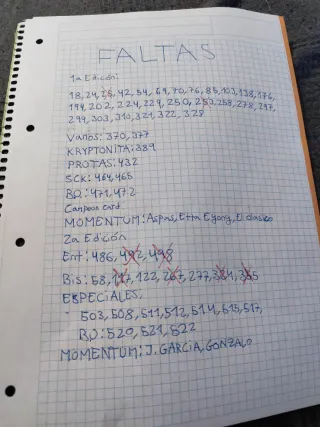 FALTAS
1a Edición:
18, 24, 25, 42, 54, 69, 70, 76, 85, 103, 138, 176,
194, 202, 224, 229, 250, 253, 258, 278, 297,
299, 303, 310, 321, 322, 328
Varios: 370, 377
KRYPTONITA: 389
PROTAS: 432
SCK: 464, 465
BO: 471, 472
Campeon card
MOMENTUM: Aspas, Etta Eyong, El clasico
2a Edición
Ent: 486, 492, 498
Bis: 58, 117, 122, 267, 277, 324, 355
ESPECIALES:
503, 508, 511, 512, 514, 515, 517,
BO: 520, 521, 522
MOMENTUM: J. GARCIA, GONZALO